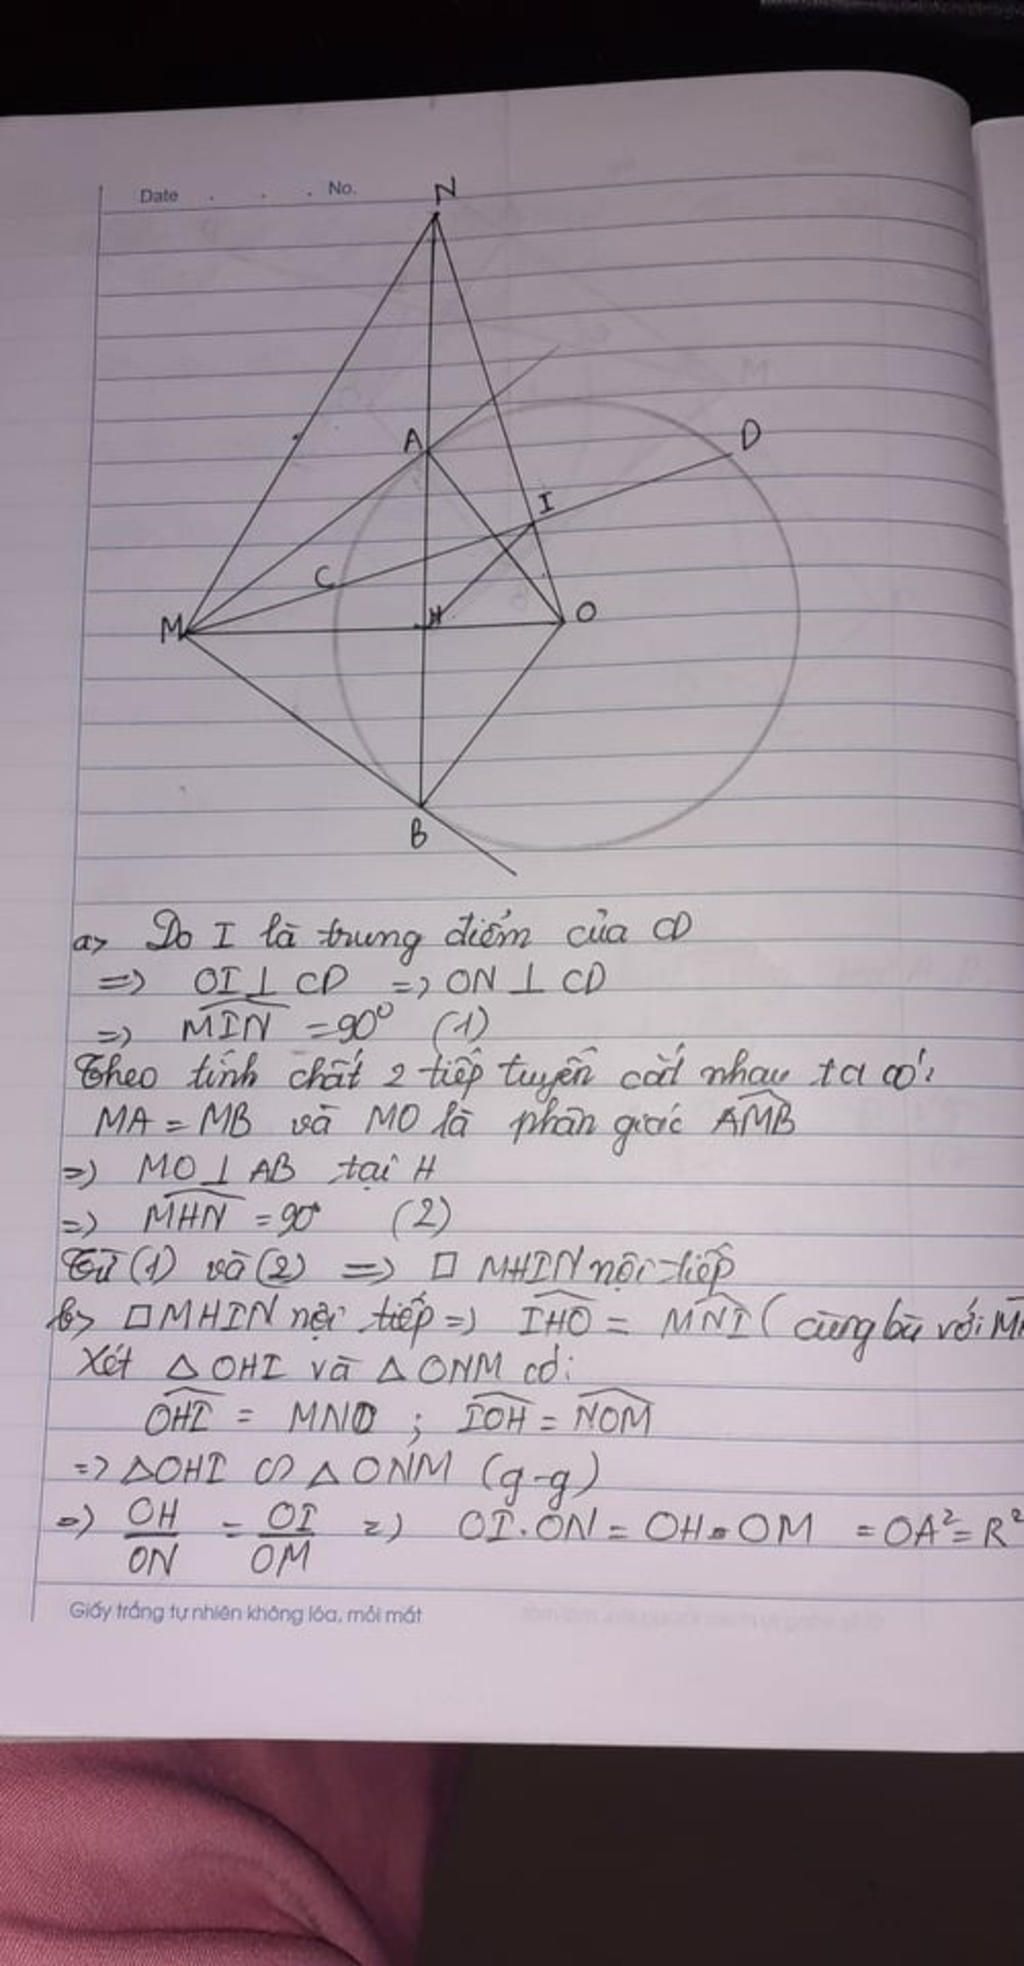 Date . . . No.
N
A
D
I
C
M
H
O
B
a> Do I là trung điểm của CD
=> OI ⊥ CD => ON ⊥ CD
=> MIN = 90° (1)
Theo tính chất 2 tiếp tuyến cắt nhau ta có:
MA = MB và MO là phân giác AMB
=> MO ⊥ AB tại H
=> MHN = 90° (2)
Từ (1) và (2) => □ MHIN nội tiếp
b> □ MHIN nội tiếp => IHO = MNI ( cùng bù với
Xét △ OHI và △ ONM có:
OHI = MNO ; IOH = NOM
=> △OHI ∽ △ONM (g-g)
=> OH/ON = OI/OM => OI.ON = OH.OM = OA² = R²
Giấy trắng tự nhiên không lóa, mỏi mắt